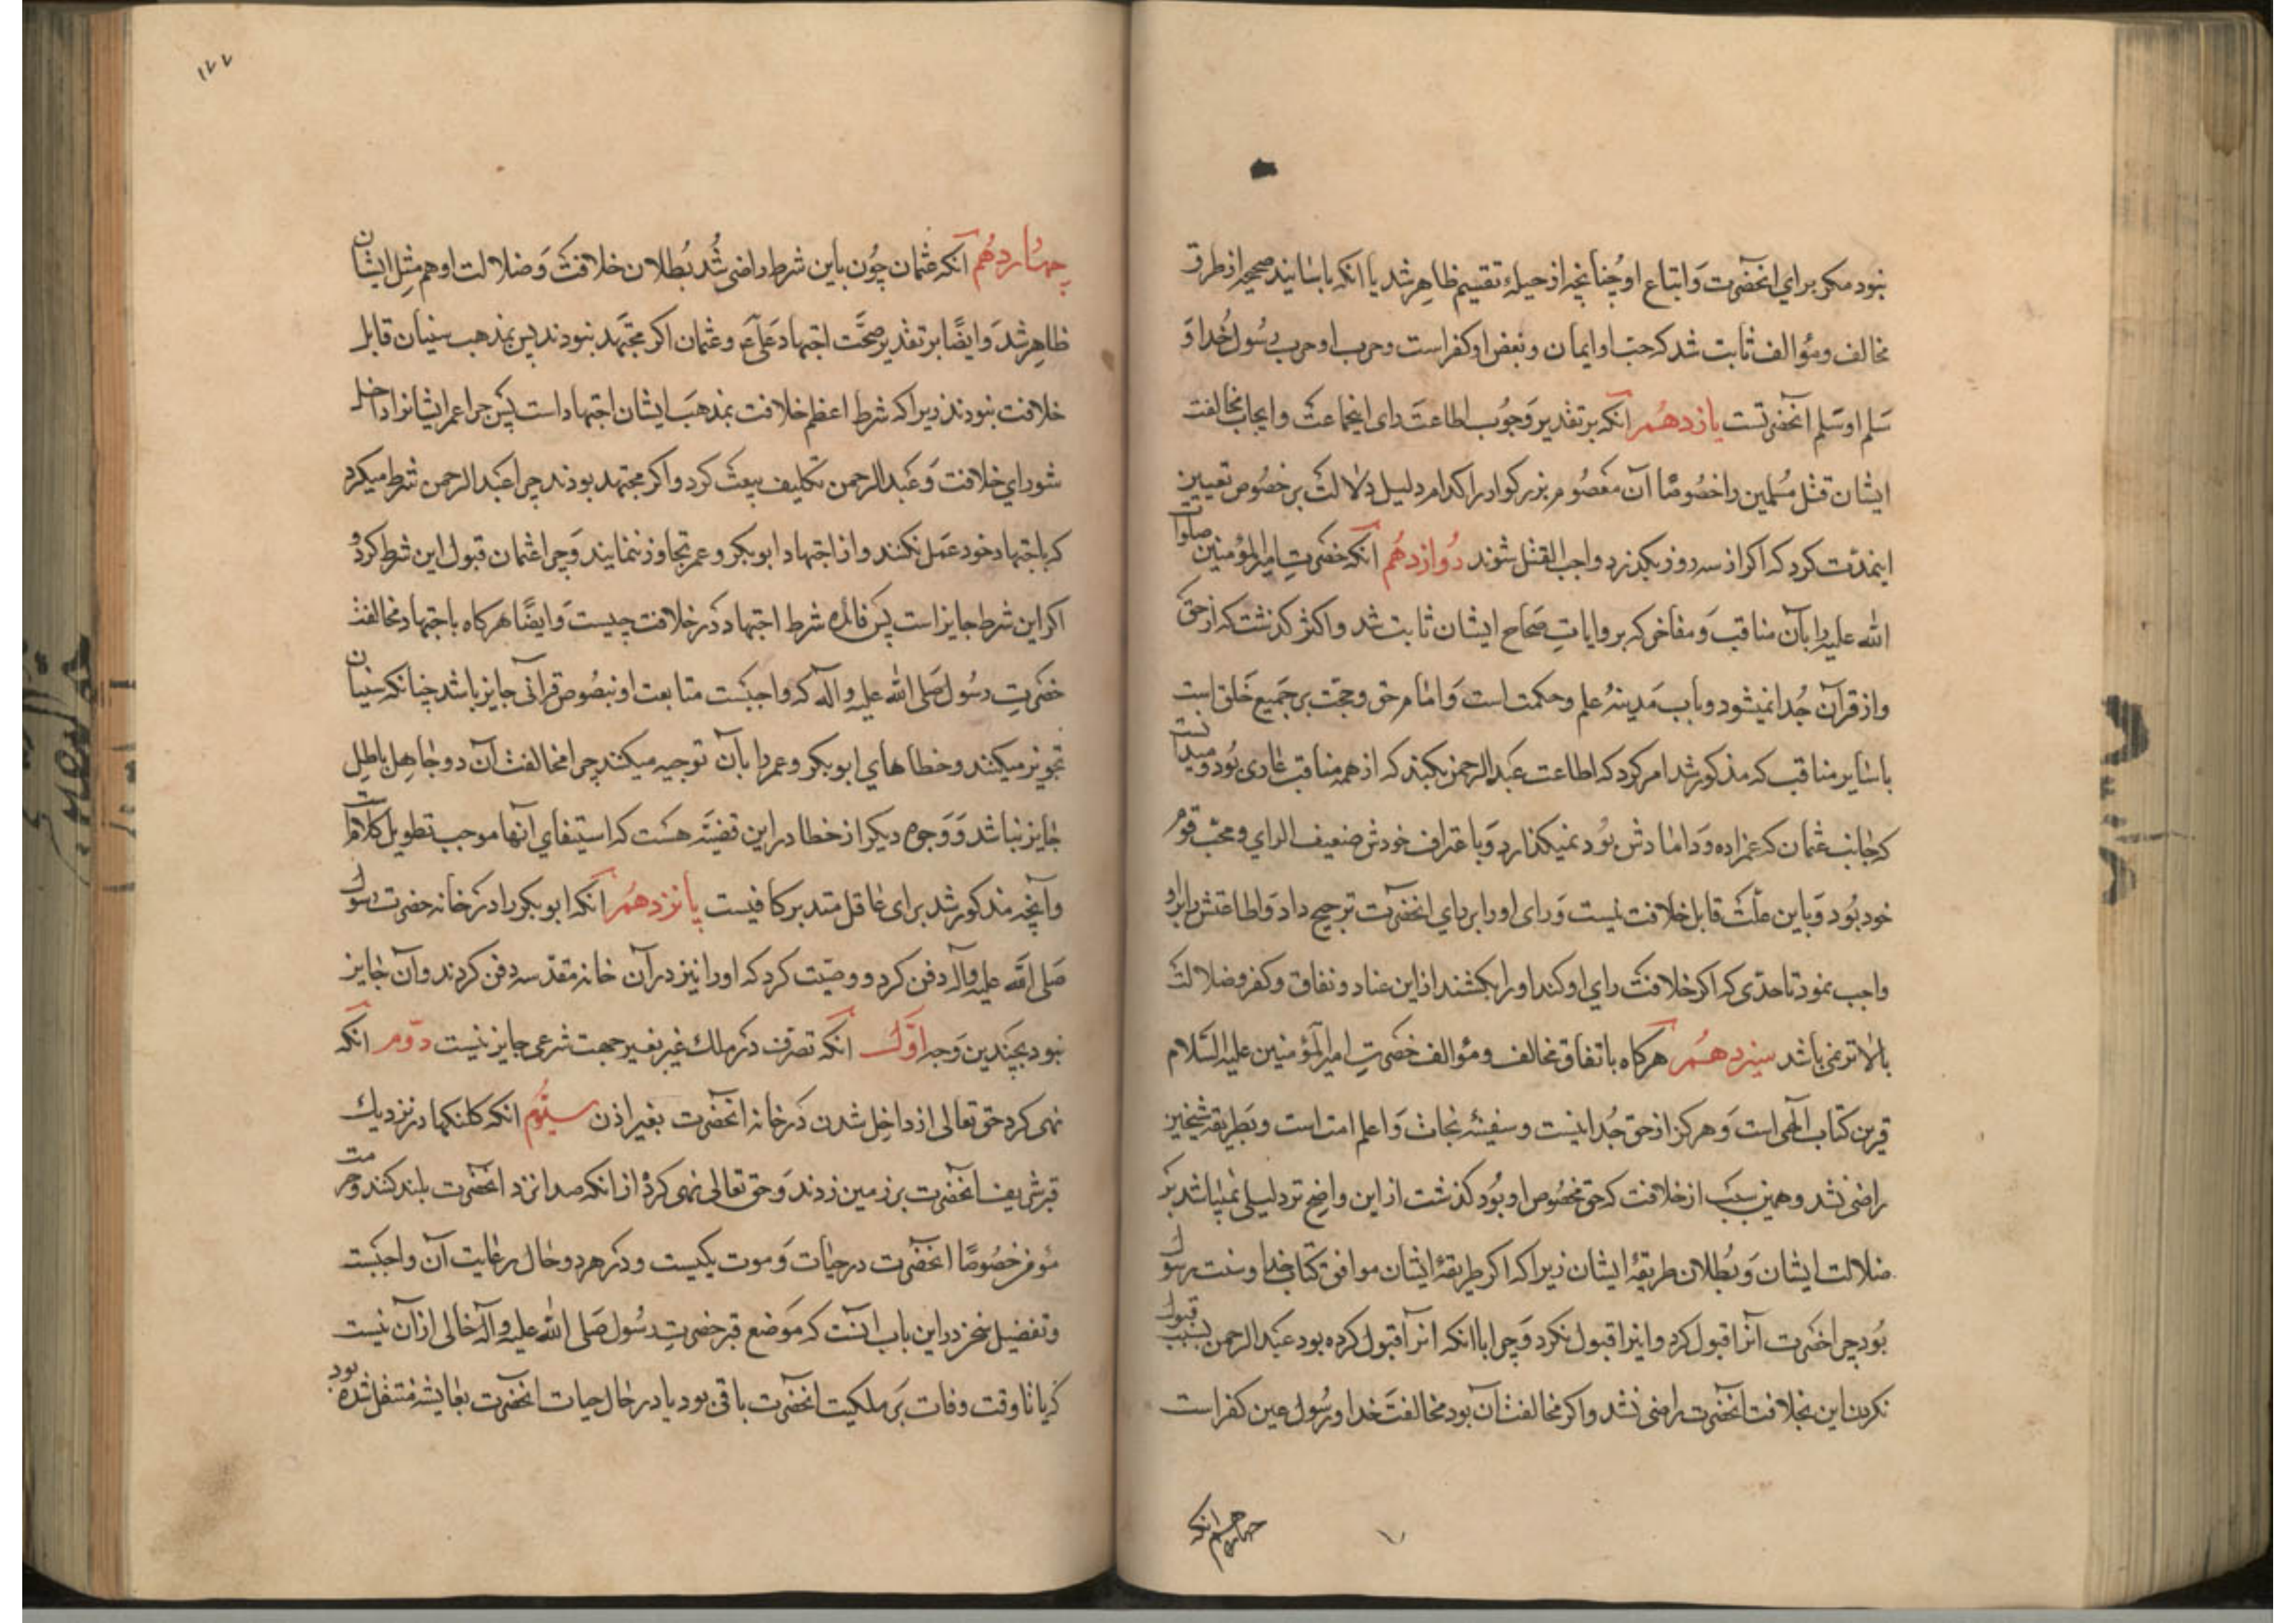 نبود مکر برای انحضرت و اتباع او چنانچه از حیلهٔ تقسیم ظاهر شد یا انکه باسانید صحیحه از طرق
مخالف و مؤالف ثابت شد که حبّ او ایمان و بغض او کفر است و حرب او حرب رسول خدا و
سلم او سلم انحضرتست یازدهم انکه بر تقدیر وجوب اطاعت رای اینجماعت و ایجاب مخالفت
ایشان قتل مسلمین را خصوصًا آن معصوم بزرکوار را کدام دلیل دلالت بر خصوص تعیین
اینمدّت کرد که اکر از سه روز بکذرد واجب القتل شوند دوازدهم انکه حضرت امیرالمؤمنین صلوات
الله علیه را بآن مناقب و مفاخر که بروایات صحاح ایشان ثابت شد و اکثر کذشت که از حق
و از قرآن جدا نمیشود و باب مدینهٔ علم و حکمت است و امام حق و حجّت بر جمیع خلق است
با سایر مناقب که مذکور شد امر کرد که اطاعت عبدالرحمن بکند که از همه مناقب عاری بود و میدانست
که جانب عثمان که عمزاده و دامادش بود نمیکذارد و باعتراف خودش ضعیف الرای و محبّ قوم
خود بود و باین علّت قابل خلافت نیست و رای او را بر رای انحضرت ترجیح داد و اطاعتش را بر او
واجب نمود تا حدّی که اکر خلافت رای او کند او را بکشند از این عناد و نفاق و کفر و ضلالت
بالاتر نمی باشد سیزدهم هرکاه باتفاق مخالف و مؤالف حضرت امیرالمؤمنین علیه السلام
قرین کتاب الهی است و هرکز از حق جدا نیست و سفینهٔ نجات و اعلم امت است و بطریقهٔ شیخین
راضی نشد و همین سبب از خلافت که حق مخصوص او بود کذشت از این واضح تر دلیلی نمیباشد بر
ضلالت ایشان و بطلان طریقهٔ ایشان زیرا که اکر طریقهٔ ایشان موافق کتاب خدا و سنت رسول
بود چرا حضرت آنرا قبول کرد و اینرا قبول نکرد و چرا با انکه انرا قبول کرده بود عبدالرحمن بسبب قبول
نکردن این بخلافت انحضرت راضی نشد و اکر مخالفت آن بود مخالفت خدا و رسول عین کفر است
چهاردهم انکه
۱۷۷
چهاردهم انکه عثمان چون باین شرط راضی شد بطلان خلافت و ضلالت او هم مثل ایشان
ظاهر شد و ایضًا بر تقدیر صحّت اجتهاد علی ع و عثمان اکر مجتهد نبودند پس بمذهب سنیان قابل
خلافت نبودند زیرا که شرط اعظم خلافت بمذهب ایشان اجتهاد است پس چرا عمر ایشانرا داخل
شورای خلافت و عبدالرحمن تکلیف بیعت کرد و اکر مجتهد بودند چرا عبدالرحمن شرط میکرد
که باجتهاد خود عمل نکنند و از اجتهاد ابوبکر و عمر تجاوز ننمایند و چرا عثمان قبول این شرط کرد و
اکر این شرط جایز است پس فائدهٔ شرط اجتهاد در خلافت چیست و ایضًا هرکاه باجتهاد مخالفت
حضرت رسول صلی الله علیه و آله که واجبست متابعت او بنصوص قرآنی جایز باشد چنانکه سنیان
تجویز میکنند و خطاهای ابوبکر و عمر را بآن توجیه میکنند چرا مخالفت آن دو جاهل باطل
جایز نباشد و وجوه دیکر از خطا در این قضیّه هست که استیفای انها موجب تطویل کلامست
و آنچه مذکور شد برای عاقل متدبر کافیست پانزدهم انکه ابوبکر را در خانه حضرت رسول
صلی الله علیه و آله دفن کرد و وصیّت کرد که او را نیز در آن خانه مقدسه دفن کردند و آن جایز
نبود بچندین وجه اوّل انکه تصرف در ملک غیر بغیر جهت شرعی جایز نیست دوّم انکه
نهی کرد حق تعالی از داخل شدن در خانه انحضرت بغیر اذن سیّوم انکه کلنکها در نزدیک
قبر شریف انحضرت بر زمین زدند و حق تعالی نهی کرده از انکه صدا نزد انحضرت بلند کنند و حرمت
مؤمن خصوصًا انحضرت در حیات و موت یکیست و در هر دو حال رعایت آن واجبست
و تفصیل سخن در این باب انست که موضع قبر حضرت رسول صلی الله علیه و آله خالی از آن نیست
که یا تا وقت وفات بر ملکیت انحضرت باقی بود یا در حال حیات انحضرت بعایشه منتقل شده بود